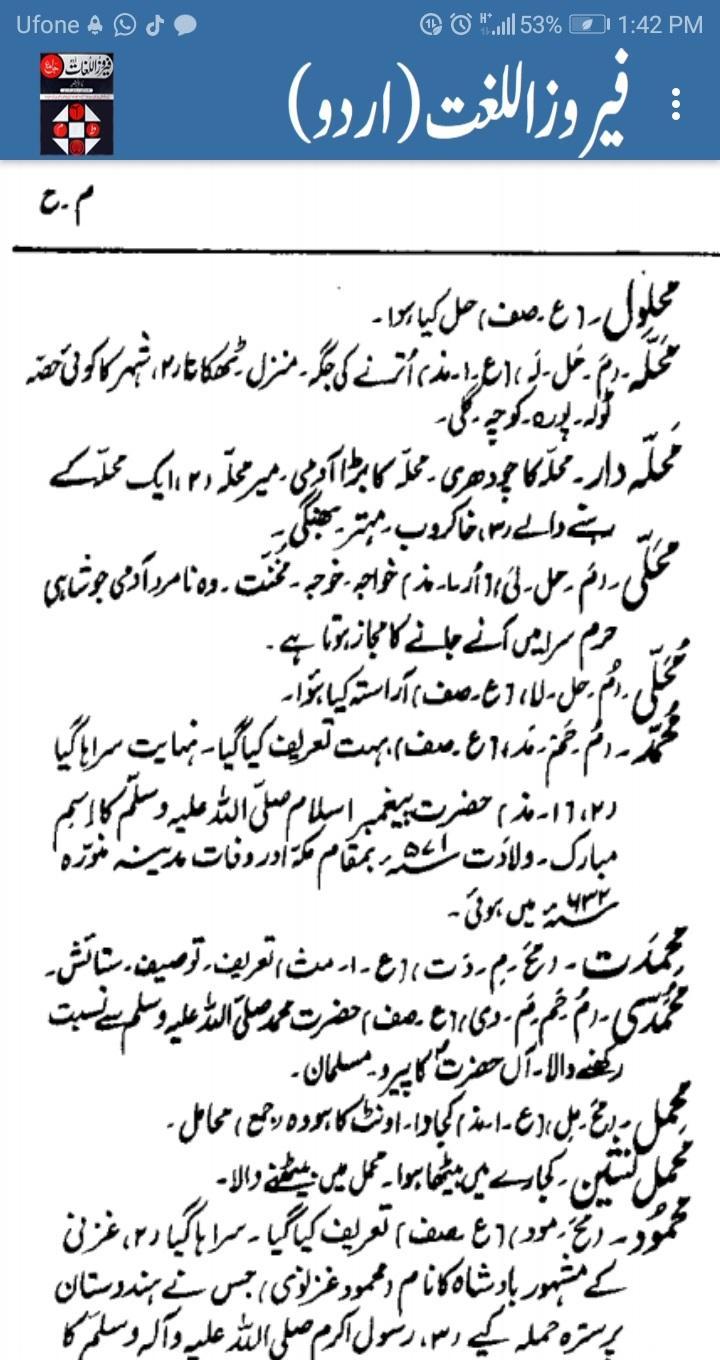 Ufone 53% 1:42 PM
فیروزاللغت (اردو)
م۔ح
محلول۔ [ع۔صف] حل کیا ہوا۔
محلّہ۔ (مَ۔حَل۔لَہ) [ع۔ا۔مذ] اُترنے کی جگہ۔ منزل ٹھکانا (۲) شہر کا کوئی حصّہ
ٹولہ۔ پورہ۔ کوچہ۔ گلی۔
محلّہ دار۔ محلّہ کا چودھری۔ محلّہ کا بڑا آدمی۔ میر محلّہ (۲) ایک محلّہ کے
رہنے والے (۳) خاکروب۔ مہتر۔ بھنگی۔
محَلّی۔ (مَ۔حل۔لی) [اُر۔ا۔مذ] خواجہ۔ خوجہ۔ مخنّث۔ وہ نامرد آدمی جو شاہی
حرم سرا میں آنے جانے کا مجاز ہوتا ہے۔
مُحَلّٰی۔ (مُ۔حل۔لا) [ع۔صف] آراستہ کیا ہُوا۔
مُحمّد۔ (مُ۔حَم۔مَد) [ع۔صف] بہت تعریف کیا گیا۔ نہایت سراہا گیا
(۲) [ا۔مذ] حضرت پیغمبر اسلام صلّی اللہ علیہ وسلّم کا اِسم
مبارک۔ ولادت ۵۷۱ء بمقام مکّہ اور وفات مدینہ منوّرہ
۶۳۲ء میں ہوئی۔
مَحمِدَت۔ (مَح۔مِ۔دَت) [ع۔ا۔مث] تعریف۔ توصیف۔ ستائش۔
محمّدی۔ (مُ۔حَم۔مَ۔دی) [ع۔صف] حضرت محمد صلّی اللہ علیہ وسلم سے نسبت
رکھنے والا۔ آں حضرتؐ کا پیرو۔ مسلمان۔
مَحمِل۔ (مَح۔مِل) [ع۔ا۔مذ] کجاوا۔ اونٹ کا ہودہ (جمع) محامل۔
محمل نشین۔ کجاوے میں بیٹھا ہوا۔ محمل میں بیٹھنے والا۔
محمُود۔ (مَح۔مود) [ع۔صف] تعریف کیا گیا۔ سراہا گیا (۲) غزنی
کے مشہور بادشاہ کا نام (محمود غزنوی) جس نے ہندوستان
پر سترہ حملہ کیے (۳) رسول اکرم صلی اللہ علیہ وآلہ وسلم کا